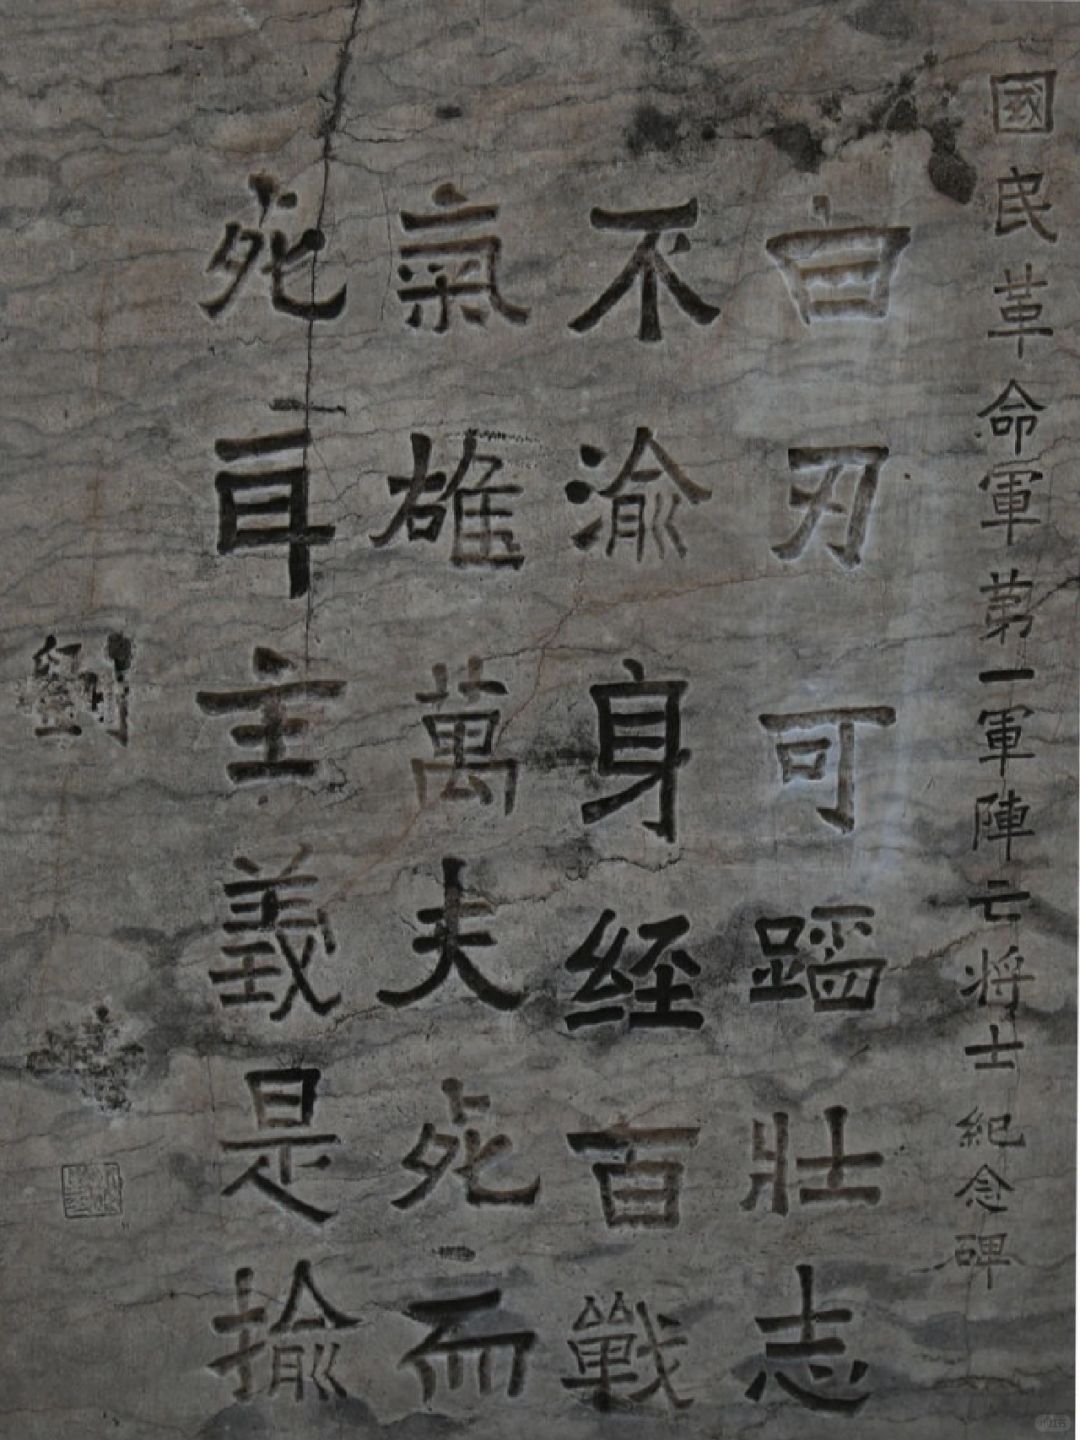 國民革命軍第一軍陣亡将士紀念碑
白刃可蹈壯志
不渝身經百戰
氣雄萬夫死而
死耳主義是揄
劉